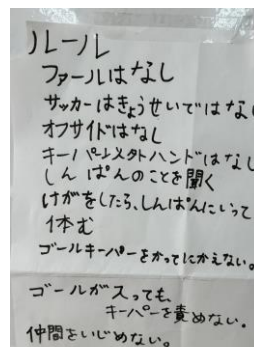 ルール
ファールはなし
サッカーはきょうせいではなし
オフサイドはなし
キーパー以外ハンドはなし
しんぱんのことを聞く
けがをしたら、しんぱんにいって
休む
ゴールキーパーをかってにかえない。
ゴールが入っても、
キーパーを責めない。
仲間をいじめない。